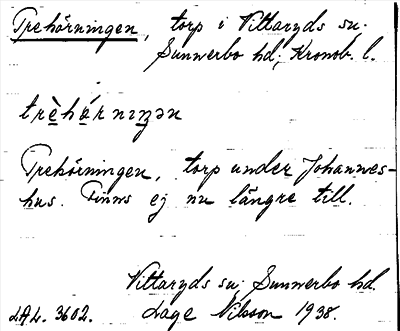 Trehörningen, torp i Vittaryds sn.
Sunnerbo hd, Kronob. l.
trèhá̱rnıŋən
Trehörningen, torp under Johannes-
hus. Finns ej nu längre till.
Vittaryds sn, Sunnerbo hd.
LAL. 3602. Lage Nilsson 1938.